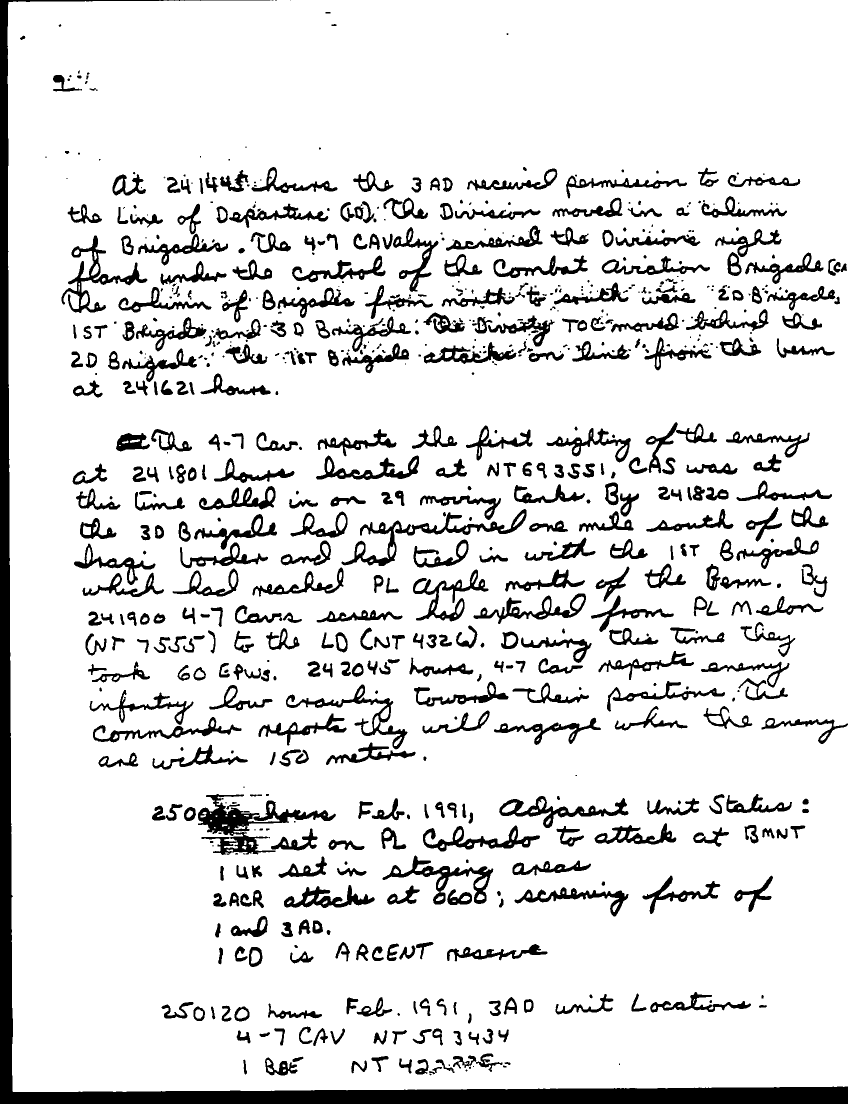 At 241445 hours the 3AD received permission to cross
the Line of Departure (LD). The Division moved in a column
of Brigades. The 4-7 CAValry screened the Divisions right
fland under the control of the Combat Aviation Brigade (CA
The column of Brigades from north to south were 2D Brigade,
1ST Brigade, and 3D Brigade. The Divarty TOC moved behind the
2D Brigade. The 1ST Brigade attacks "on line" from the berm
at 241621 hours.
The 4-7 Cav. reports the first sighting of the enemy
at 241801 hours located at NT693551, CAS was at
this time called in on 29 moving tanks. By 241820 hours
the 3D Brigade had repositioned one mile south of the
Iraqi border and had tied in with the 1ST Brigade
which had reached PL Apple north of the Berm. By
241900 4-7 Cavs screen had extended from PL Melon
(NT 7555) to the LD (NT 4326). During this time they
took 60 EPWs. 242045 hours, 4-7 Cav reports enemy
infantry low crawling towards their positions. The
Commander reports they will engage when the enemy
are within 150 meters.
hours Feb. 1991, Adjacent Unit Status:
set on PL Colorado to attack at BMNT
1 UK set in staging areas
2ACR attacks at 0600; screening front of
1 and 3AD.
1 CD is ARCENT reserve
250120 hours Feb. 1991, 3AD unit Locations:
4-7 CAV NT 593434
1 BDE NT